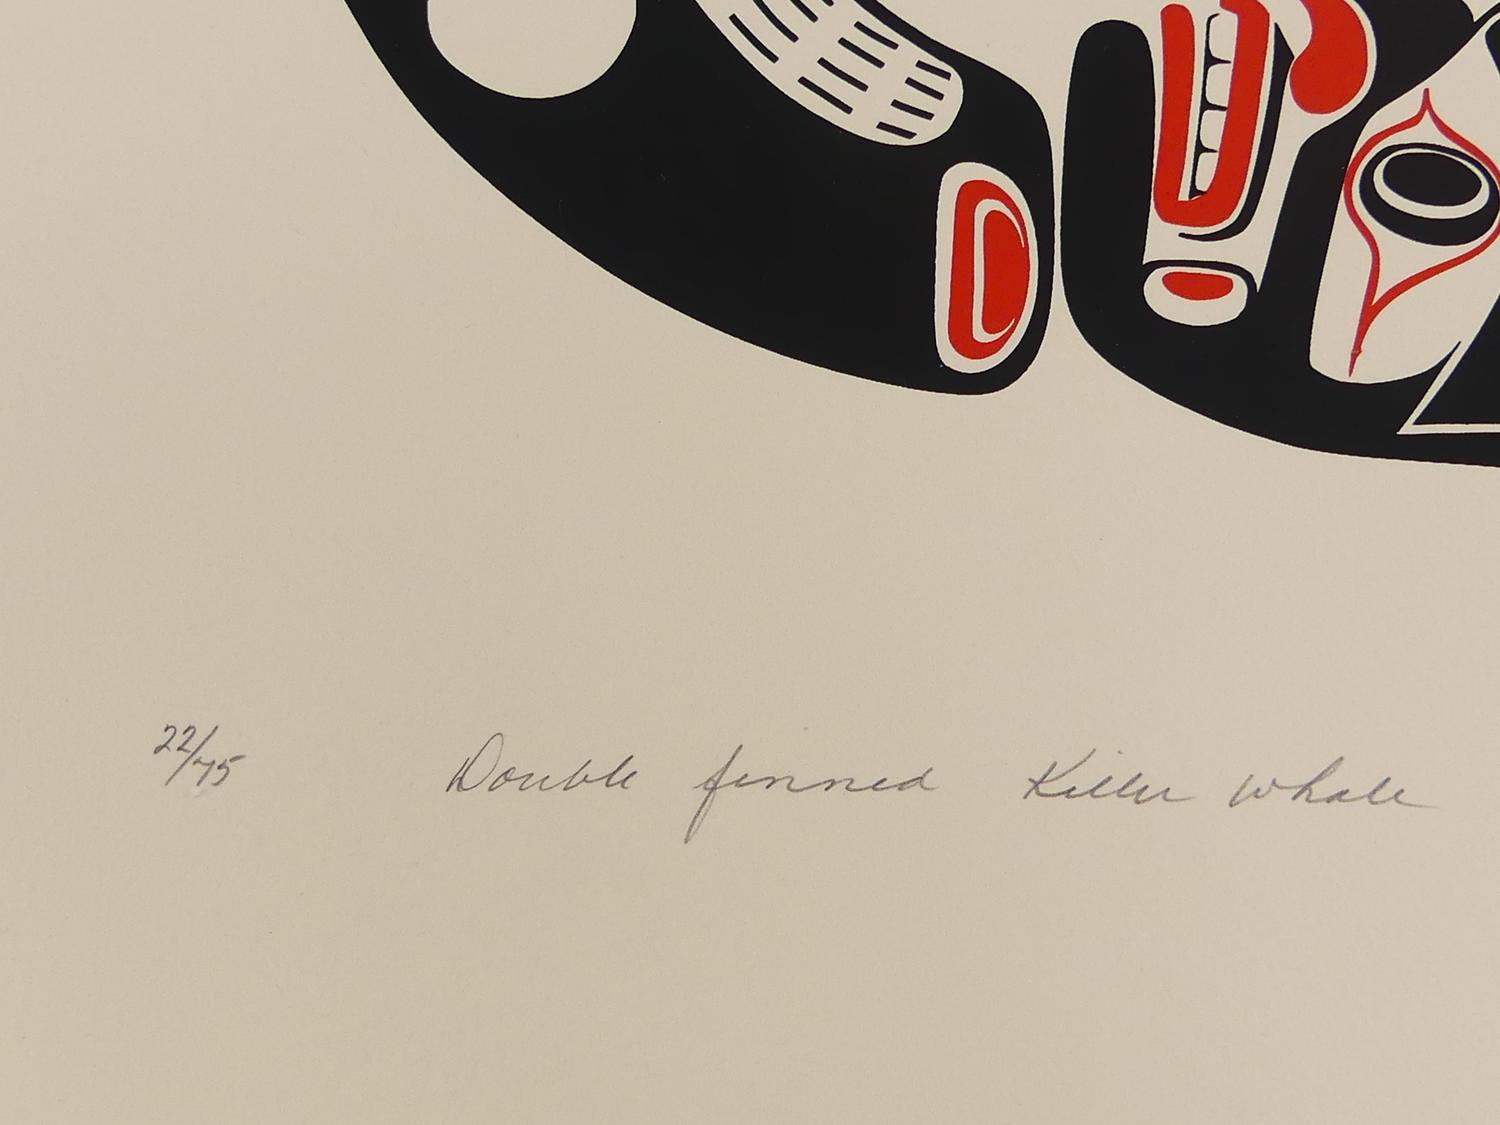 22/75 Double finned Killer Whale